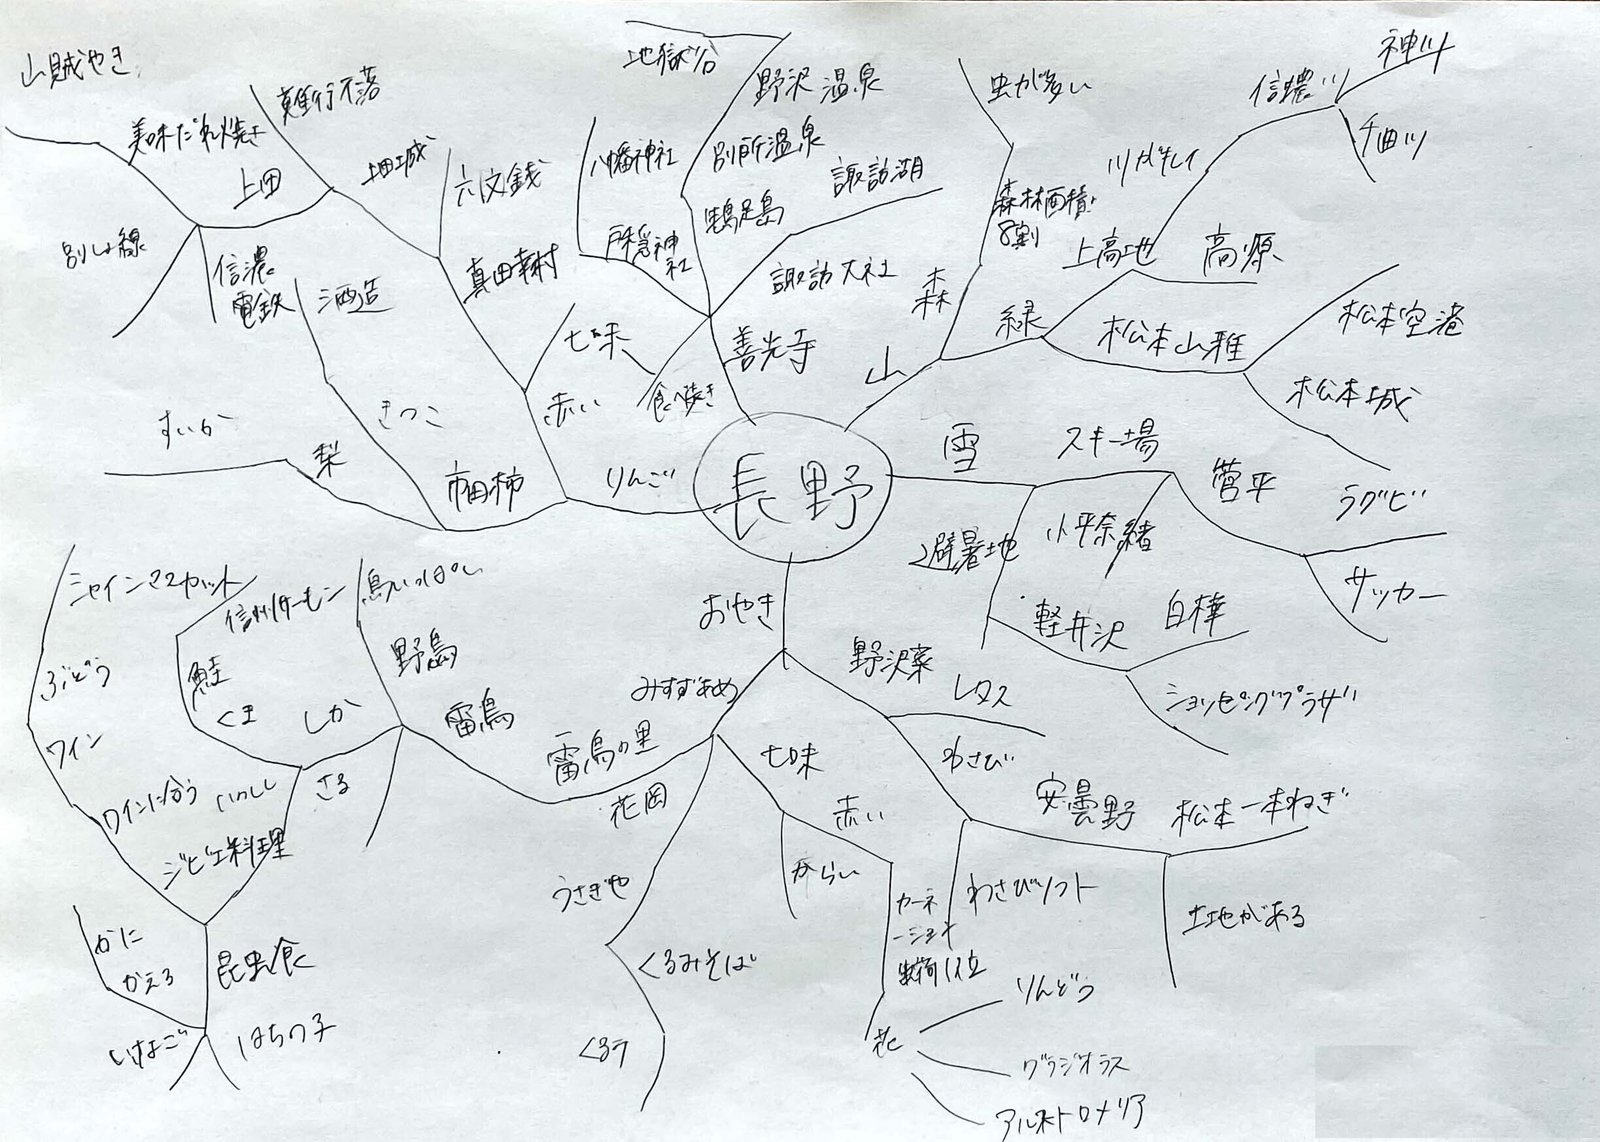 山賊やき
美味だれ焼き
難行不落
上田
上田城
別しょ線
信濃
電鉄
酒造
六文銭
真田幸村
地獄谷
野沢温泉
別所温泉
八幡神社
戸隠神
社
諏訪湖
諏訪大社
善光寺
七味
食べ歩き
赤い
りんご
市田柿
きのこ
梨
すいか
長野
山
森
森林面積
8割
虫が多い
緑
上高地
高原
川がキレイ
信濃川
神川
千曲川
松本山雅
松本空港
松本城
雪
スキー場
菅平
ラグビー
サッカー
小平奈緒
避暑地
軽井沢
白樺
ショッピングプラザ
おやき
野沢菜
レタス
わさび
安曇野
松本一本ねぎ
土地がある
わさびソフト
みすずあめ
七味
赤い
からい
カーネ
ーション
出荷1位
花
りんどう
グラジオラス
アルストロメリア
花岡
うさぎや
くるみそば
くるみ
雷鳥の里
雷鳥
野鳥
鳥いっぱい
さる
しか
くま
鮭
信州サーモン
いのしし
ジビエ料理
ワインに合う
ワイン
ぶどう
シャインマスカット
昆虫食
はちの子
いなご
かえる
かに